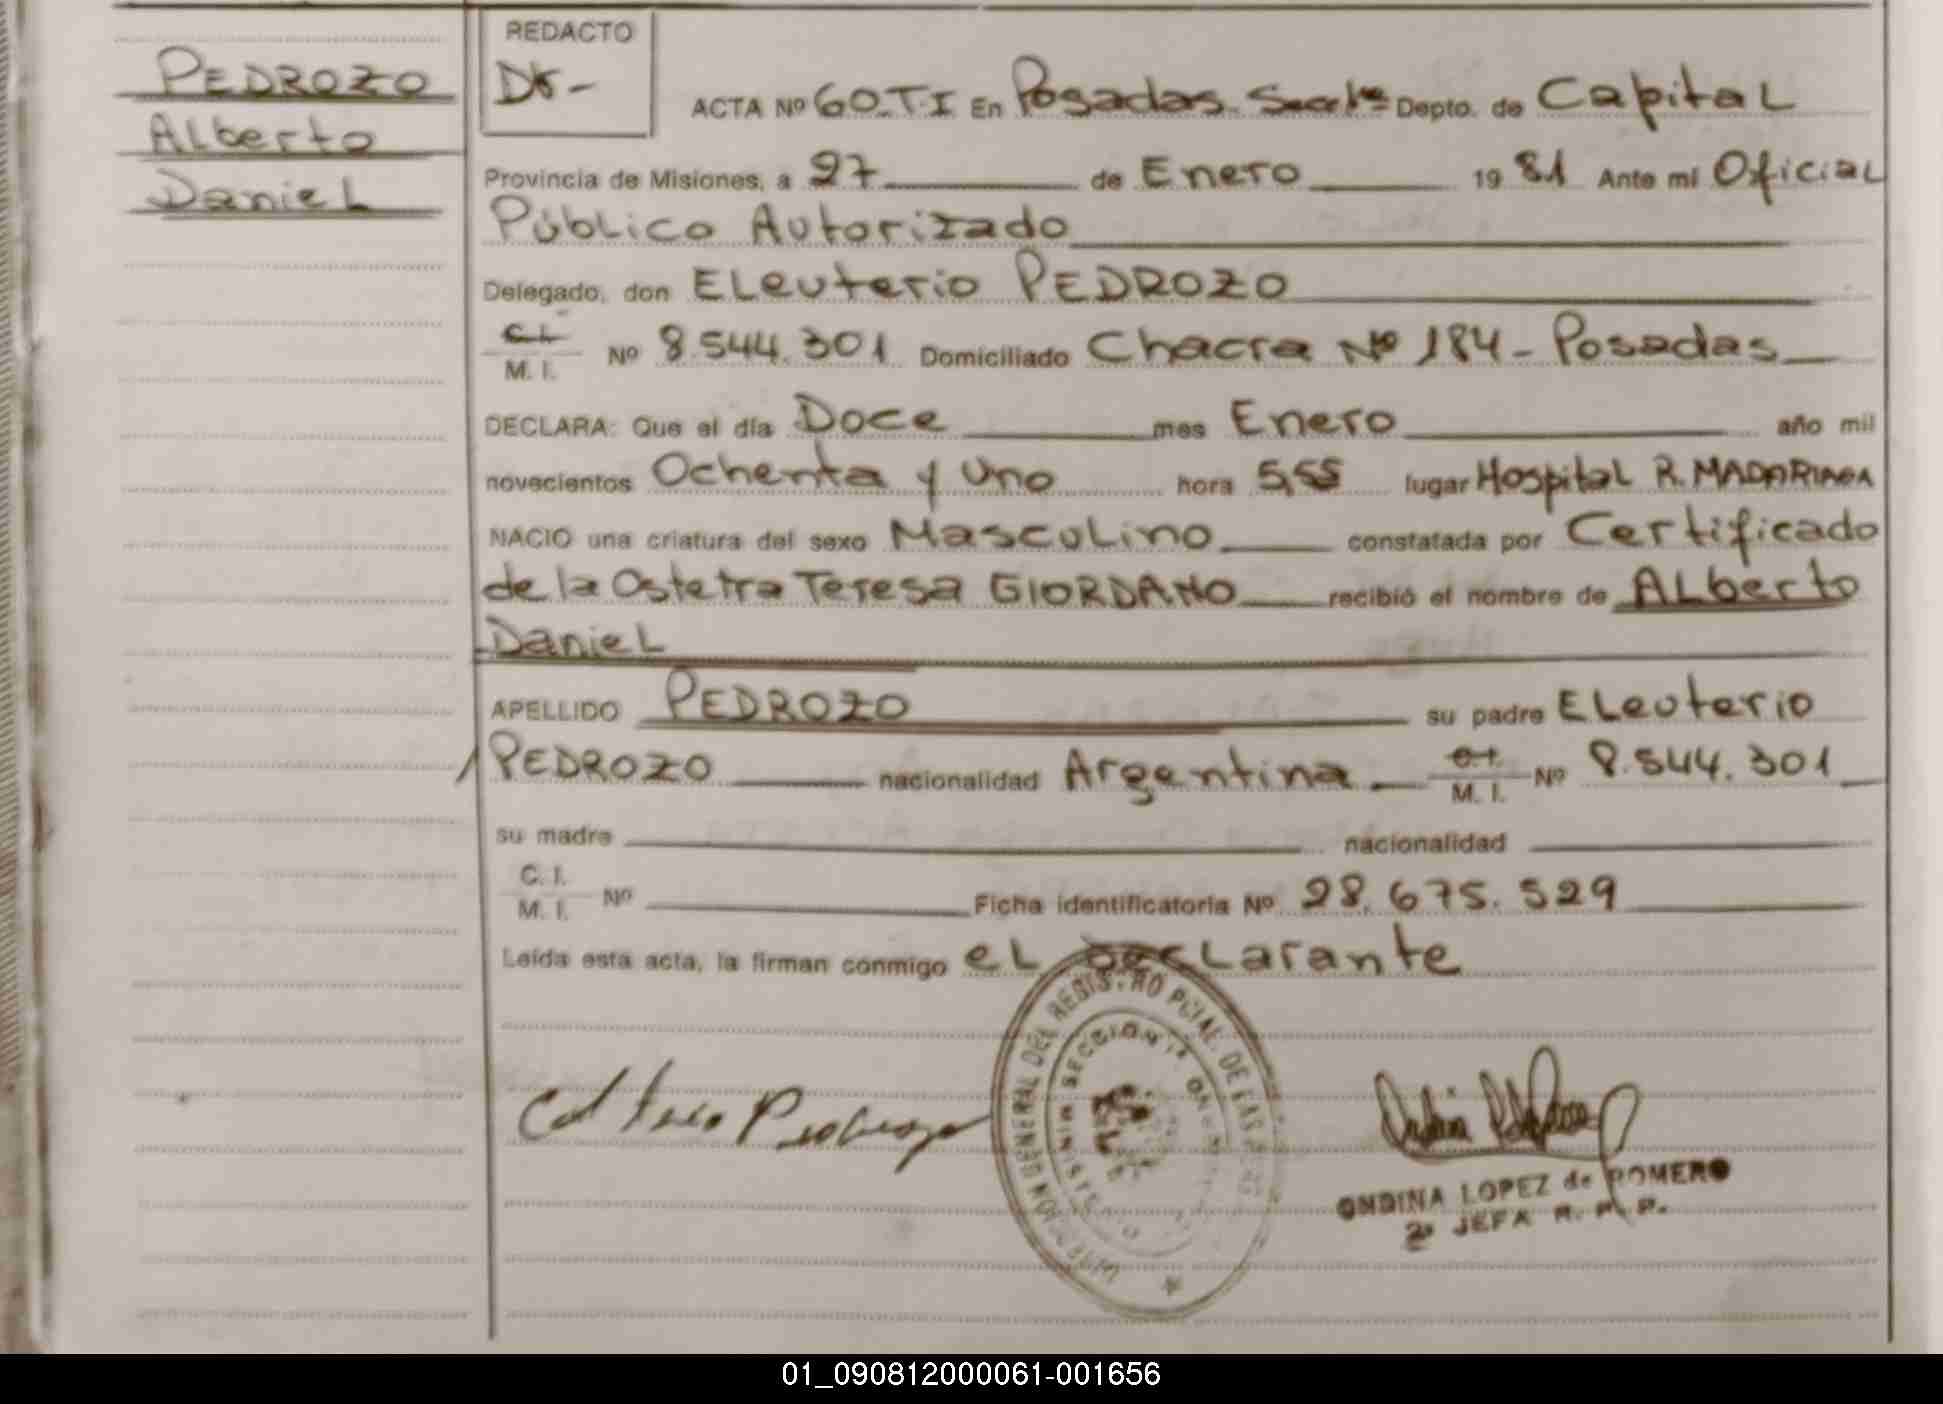 PEDROZO
Alberto
Daniel
REDACTO
ACTA Nº 60.T.I En Posadas. Depto. de Capital
Provincia de Misiones, a 27 de Enero 1981 Ante mi Oficial
Público Autorizado
Delegado, don Eleuterio PEDROZO
C.I. M. I. Nº 8.544.301 Domiciliado Chacra Nº 184 - Posadas
DECLARA: Que el día Doce mes Enero año mil
novecientos Ochenta y Uno hora 5,55 lugar Hospital R. MADARIAGA
NACIO una criatura del sexo Masculino constatada por Certificado
de la Ostetra Teresa GIORDANO recibió el nombre de Alberto
Daniel
APELLIDO PEDROZO su padre Eleuterio
PEDROZO nacionalidad Argentina C.I. M. I. Nº 8.544.301
su madre nacionalidad
C. I. M. I. Nº Ficha identificatoria Nº 28.675.529
Leída esta acta, la firman conmigo el declarante
GENERAL DEL REGISTRO PCIAL. DE LAS
SECCION
ONDINA LOPEZ de ROMERO
2ª JEFA R. P. P.
01_090812000061-001656